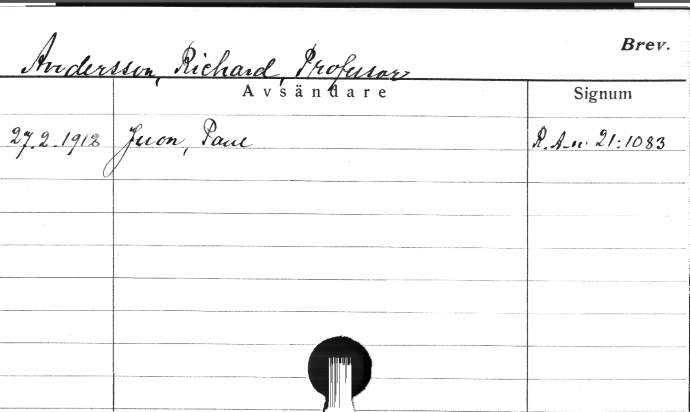 Brev.
Andersson, Richard, Professor
Avsändare Signum
27.2.1912 Juon, Paul R.A-n. 21:1083